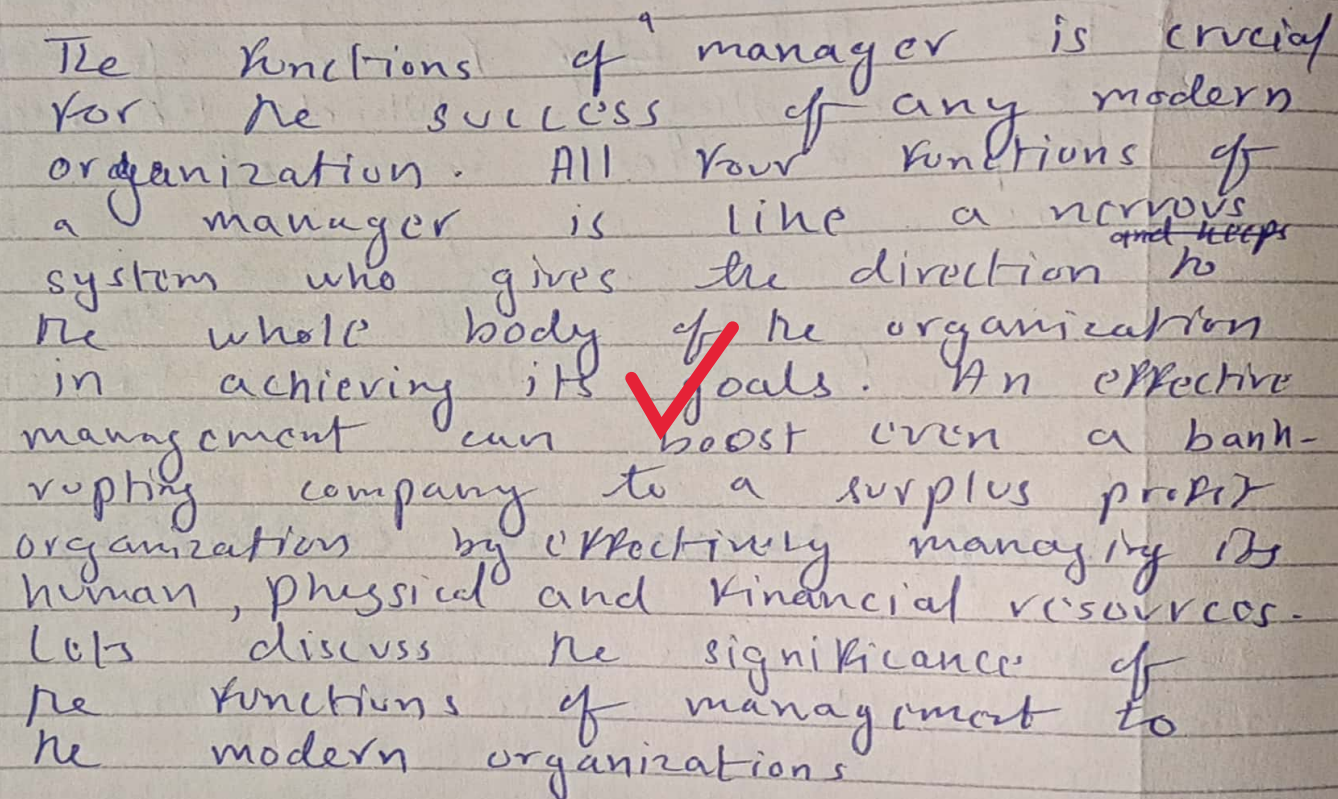 The functions of a manager is crucial
for the success of any modern
organization. All four functions of
a manager is like a nervous
system who gives the direction and keeps to
the whole body of the organization
in achieving its goals. An effective
management can boost even a bank-
rupting company to a surplus profit
organization by effectively managing its
human, physical and financial resources.
Lets discuss the significance of
the functions of management to
the modern organizations